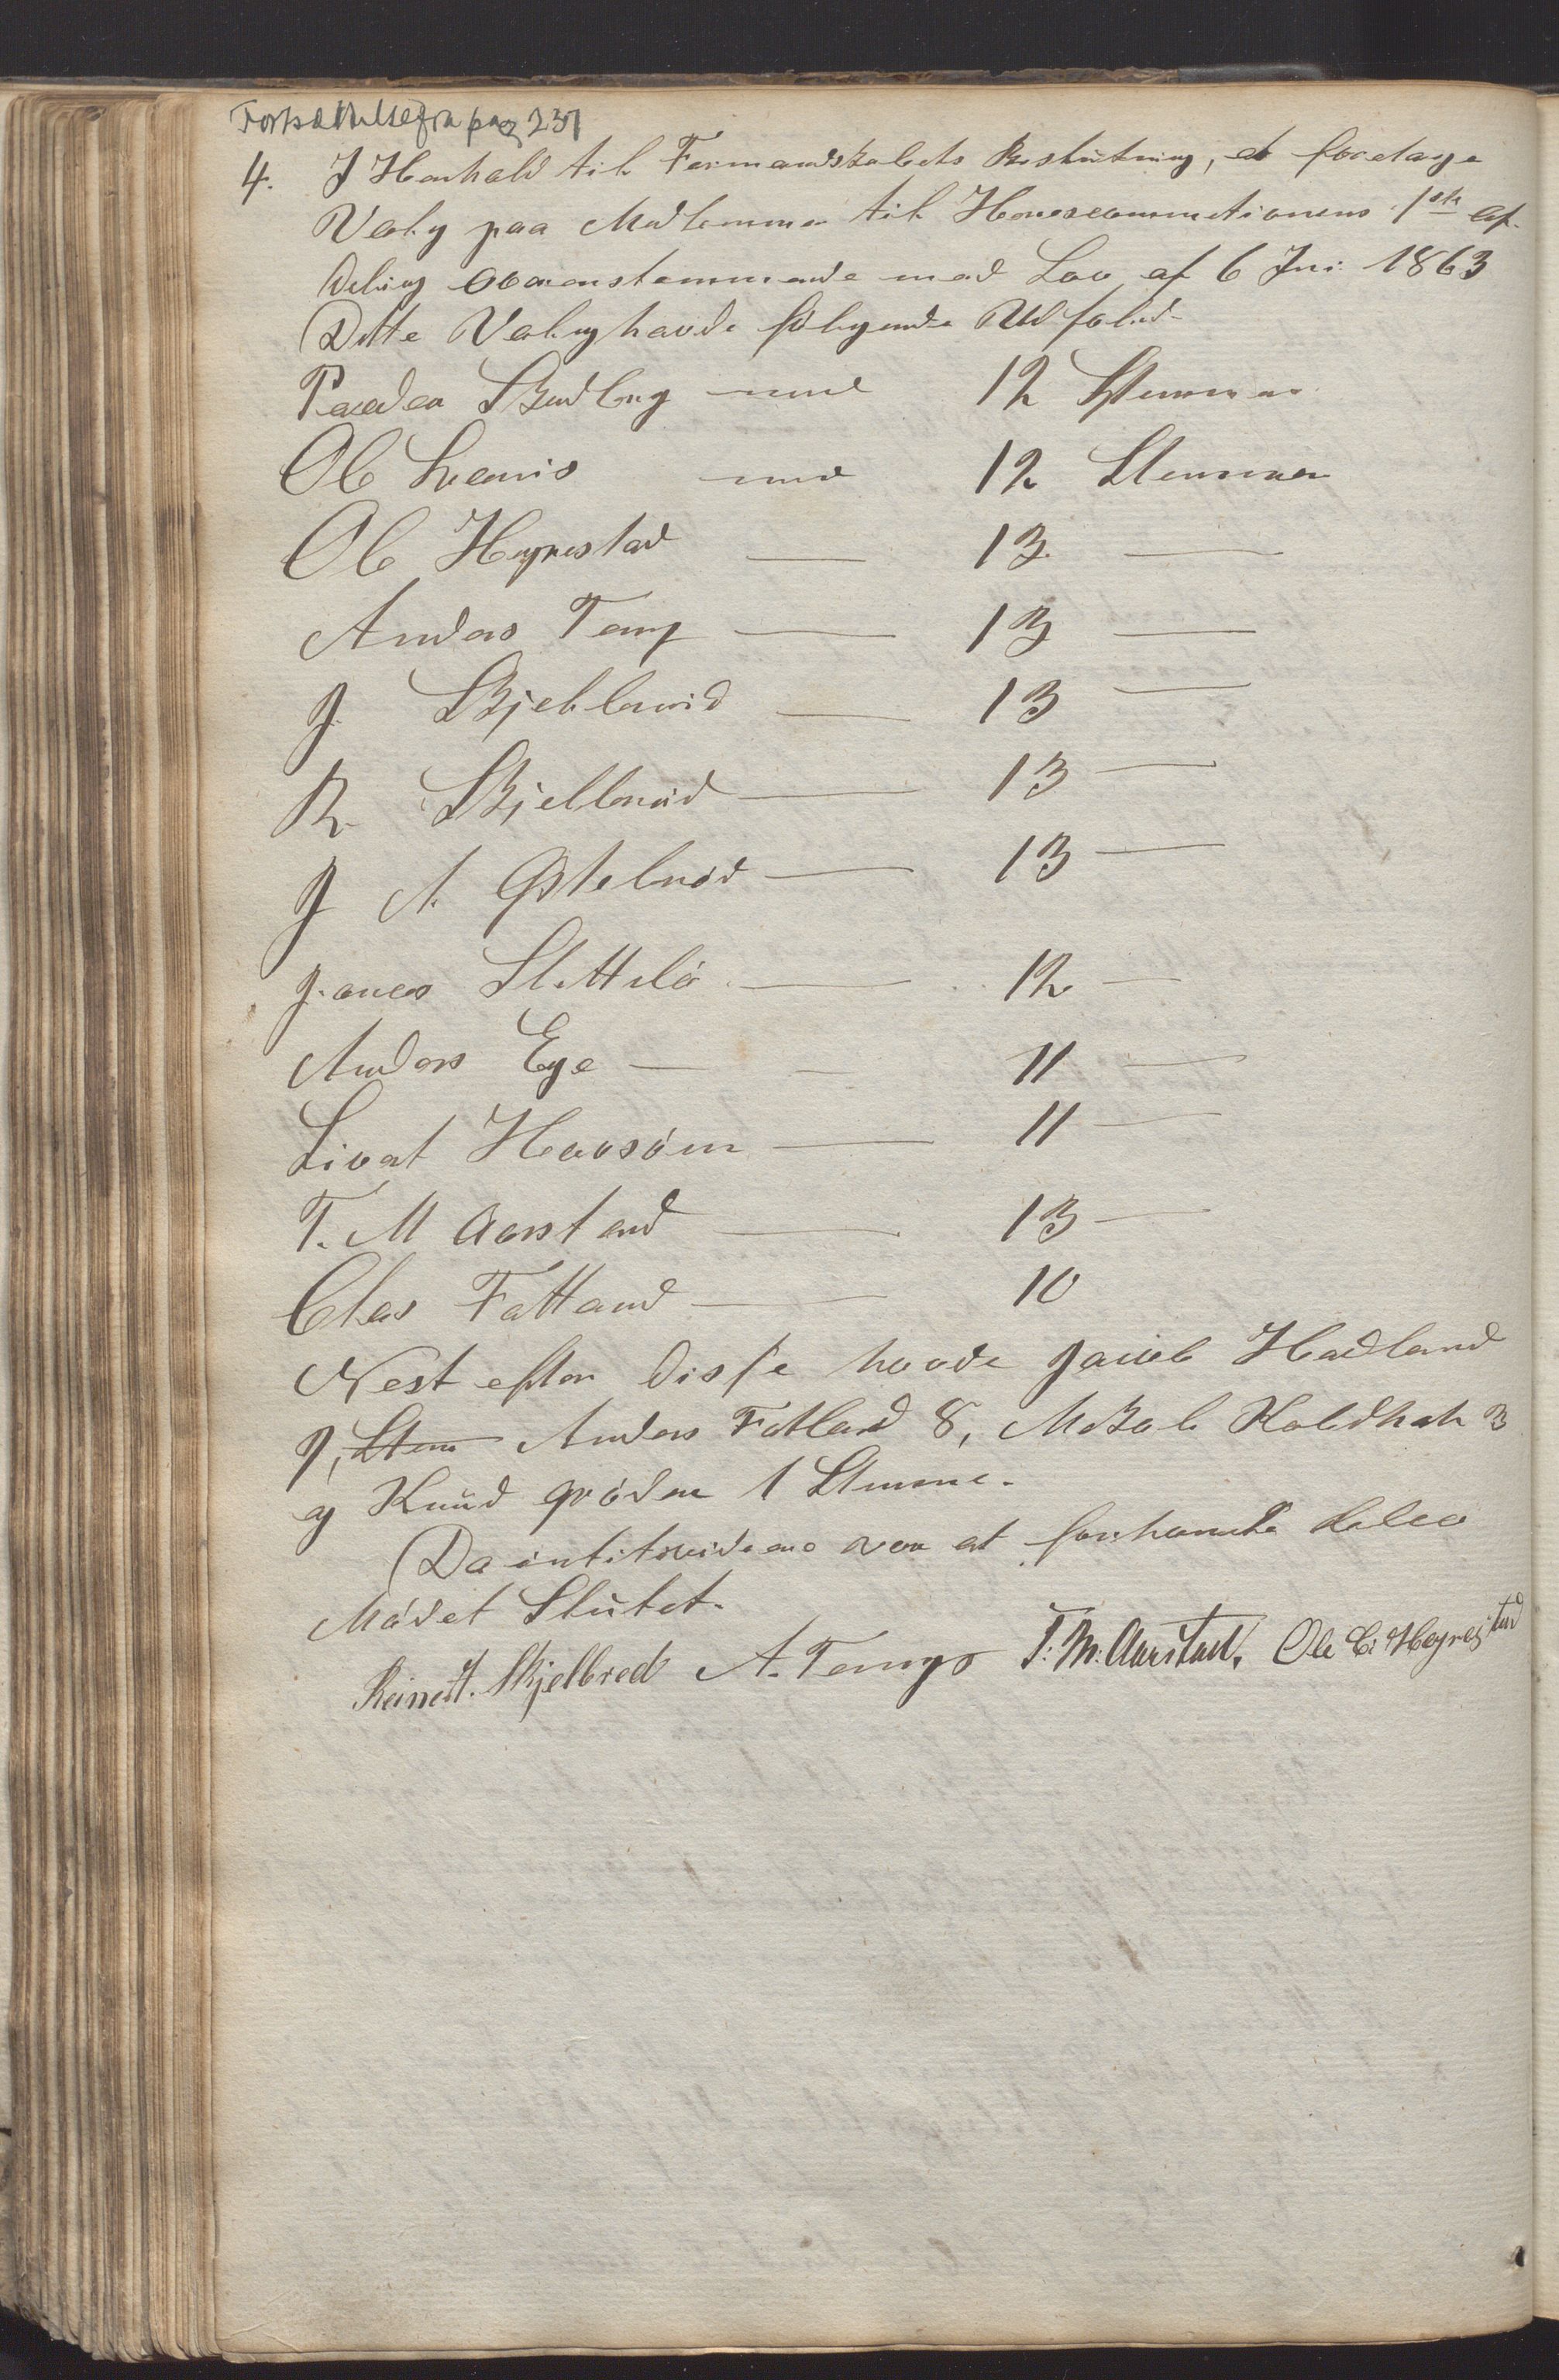 Fortsættelse fra pag 237
4. I Henhold til Formandskabets Beslutning, at foretage
Valg paa Medlemmer til Herredscommitionens 1ste Af-
deling overenstemmende med Lov af 6 Juni 1863
Dette Valg havde følgende Udfald
Peder Skudberg med 12 Stemmer
Ole med 12 Stemmer
Ole Høgrestad — 13 —
Anders Teng — 13 —
J Skjelbreid — 13 —
R. Skjelbreid — 13 —
J A. Østebröd — 13 —
Jonas Slettelö — 12 —
Anders Ege — — 11 —
Sivat Havsöen — 11 —
T. M Aarstad — 13 —
Clas Fotland — — 10
Nest efter disse havde Jacob Hadland
9, Stem Anders Fotland 8, Mikal Koldhal 3
og Knud Gröden 1 Stemme.
Da intit videre var at forhandle blev
Mödet Slutet.
Reinert. Skjelbred A. Tengs T. M. Aarstad. Ole C. Høgrestad